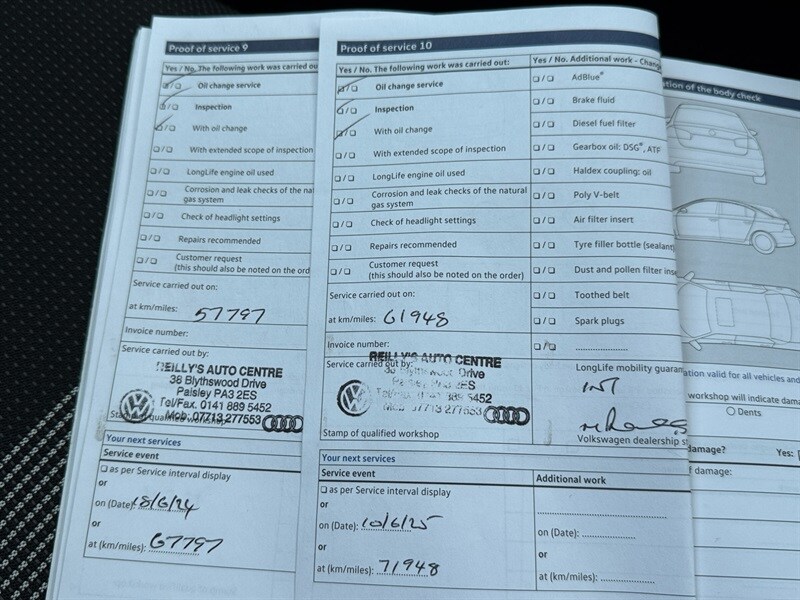 Proof of service 9
Yes / No. The following work was carried ou
Oil change service
Inspection
With oil change
With extended scope of inspection
LongLife engine oil used
Corrosion and leak checks of the nat
gas system
Check of headlight settings
Repairs recommended
Customer request
(this should also be noted on the ord
Service carried out on:
at km/miles: 57797
Invoice number:
Service carried out by:
REILLY'S AUTO CENTRE
38 Blythswood Drive
Paisley PA3 2ES
Tel/Fax. 0141 889 5452
Mob: 07713 277553
Stamp of qualified workshop
Your next services
Service event
as per Service interval display
or
on (Date): 18/6/24
or
at (km/miles): 67797
Proof of service 10
Yes / No. The following work was carried out:
Oil change service
Inspection
With oil change
With extended scope of inspection
LongLife engine oil used
Corrosion and leak checks of the natural
gas system
Check of headlight settings
Repairs recommended
Customer request
(this should also be noted on the order)
Service carried out on:
at km/miles: 61948
Invoice number:
Service carried out by:
REILLY'S AUTO CENTRE
38 Blythswood Drive
Paisley PA3 2ES
Tel/Fax. 0141 889 5452
Mob: 07713 277553
Stamp of qualified workshop
Your next services
Service event
as per Service interval display
or
on (Date): 10/6/25
or
at (km/miles): 71948
Yes / No. Additional work - Chang
AdBlue®
Brake fluid
Diesel fuel filter
Gearbox oil: DSG®, ATF
Haldex coupling: oil
Poly V-belt
Air filter insert
Tyre filler bottle (sealant)
Dust and pollen filter inse
Toothed belt
Spark plugs
LongLife mobility guaran
INT
Volkswagen dealership s
Additional work
on (Date):
or
at (km/miles):
tion of the body check
ation valid for all vehicles and
workshop will indicate dama
Dents
damage? Yes:
f damage: